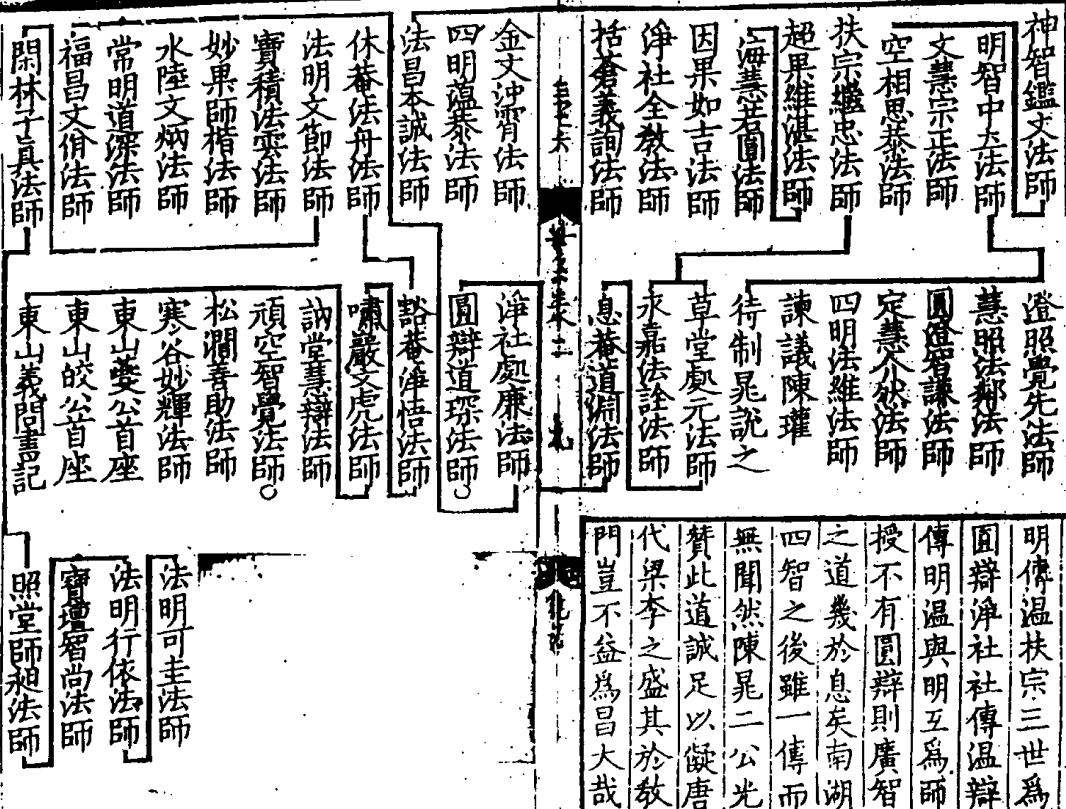 神智鑑文法師
明智中立法師
文慧宗正法師
空相思恭法師
扶宗繼忠法師
超果維湛法師
海慧若圓法師
因果如吉法師
淨社全教法師
括蒼義詢法師
澄照覺先法師
慧照法鄰法師
圓澄智謙法師
定慧介然法師
四明法維法師
諫議陳瓘
待制晁說之
草堂處元法師
永嘉法詮法師
息菴道淵法師
明傳温扶宗三世爲
圓辯淨社社傳温辯
傳明温與明互爲師
授不有圓辯則廣智
之道幾於息矣南湖
四智之後雖一傳而
無聞然陳晁二公光
贊此道誠足以儗唐
代梁李之盛其於教
門豈不益爲昌大哉
金文沖霄法師
四明蘊恭法師
法昌本誠法師
休菴法舟法師
法明文節法師
寶積法雲法師
妙果師楷法師
水陸文炳法師
常明道深法師
福昌文㑺法師
閑林子真法師
淨社處廉法師
圓辯道琛法師
豁菴淨悟法師
嘯巖文虎法師
訥堂慧辯法師
頑空智覺法師
松澗善助法師
寒谷妙輝法師
東山夔公首座
東山皎公首座
東山義問書記
法明可圭法師
法明行依法師
寶壇智尚法師
照堂師昶法師